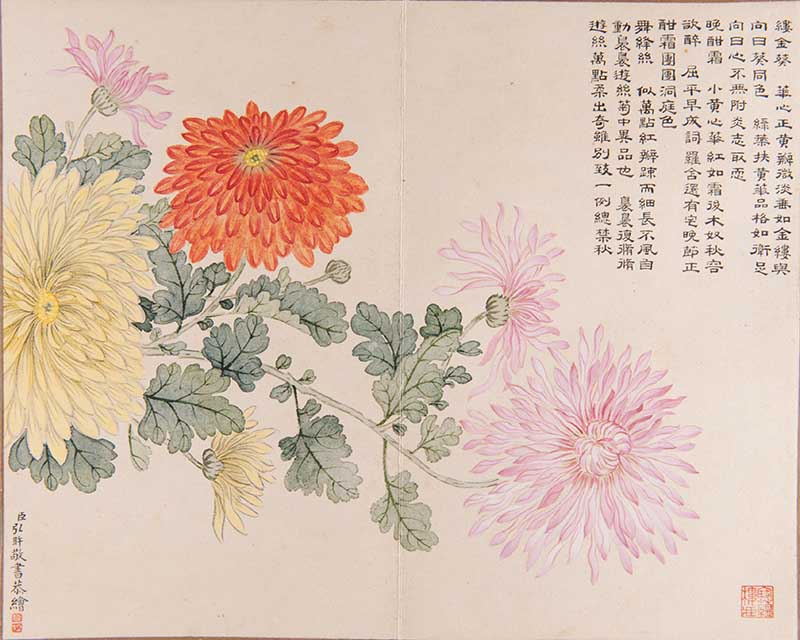 縷金葵　華心正黃瓣微淡審如金縷與
向日葵同色　綠葉扶黃華品格如衛足
向日心不無附炎志取恧
晚酣霜　小黃心華紅如霜後木奴秋容
欲醉　屈平早成詞羅含還有宅晚節正
酣霜團團洞庭色
舞絳絲　似萬點紅瓣疎而細長不風自
動裊裊遊絲菊中異品也　裊裊復
遊絲萬點柔出奇雖別致一例總禁秋
臣弘旿敬書恭繪